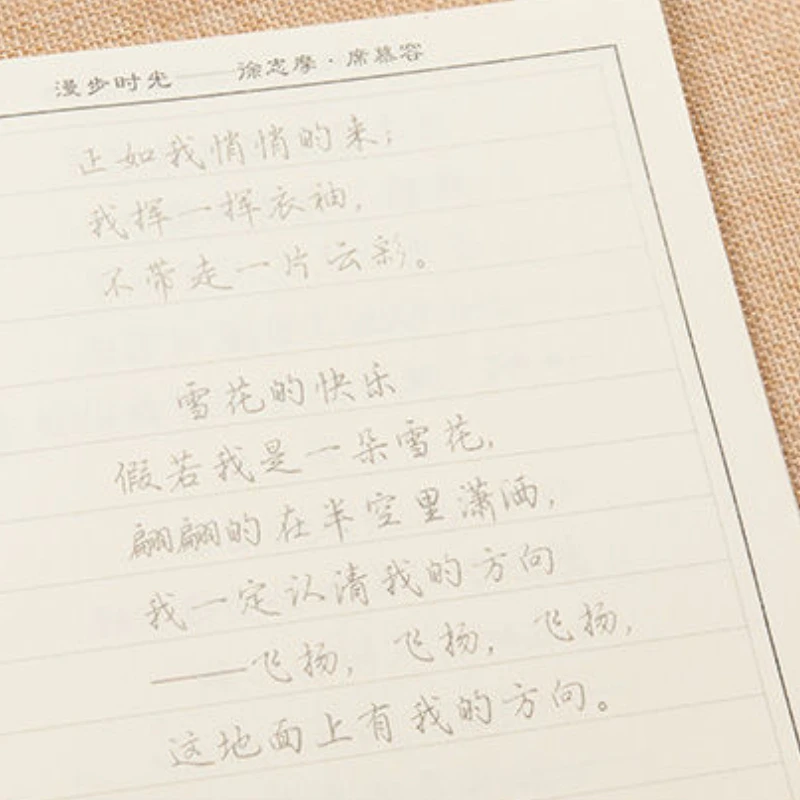 漫步时光——徐志摩·席慕容
正如我悄悄的来；
我挥一挥衣袖，
不带走一片云彩。
雪花的快乐
假若我是一朵雪花，
翩翩的在半空里潇洒，
我一定认清我的方向
——飞扬，飞扬，飞扬，
这地面上有我的方向。